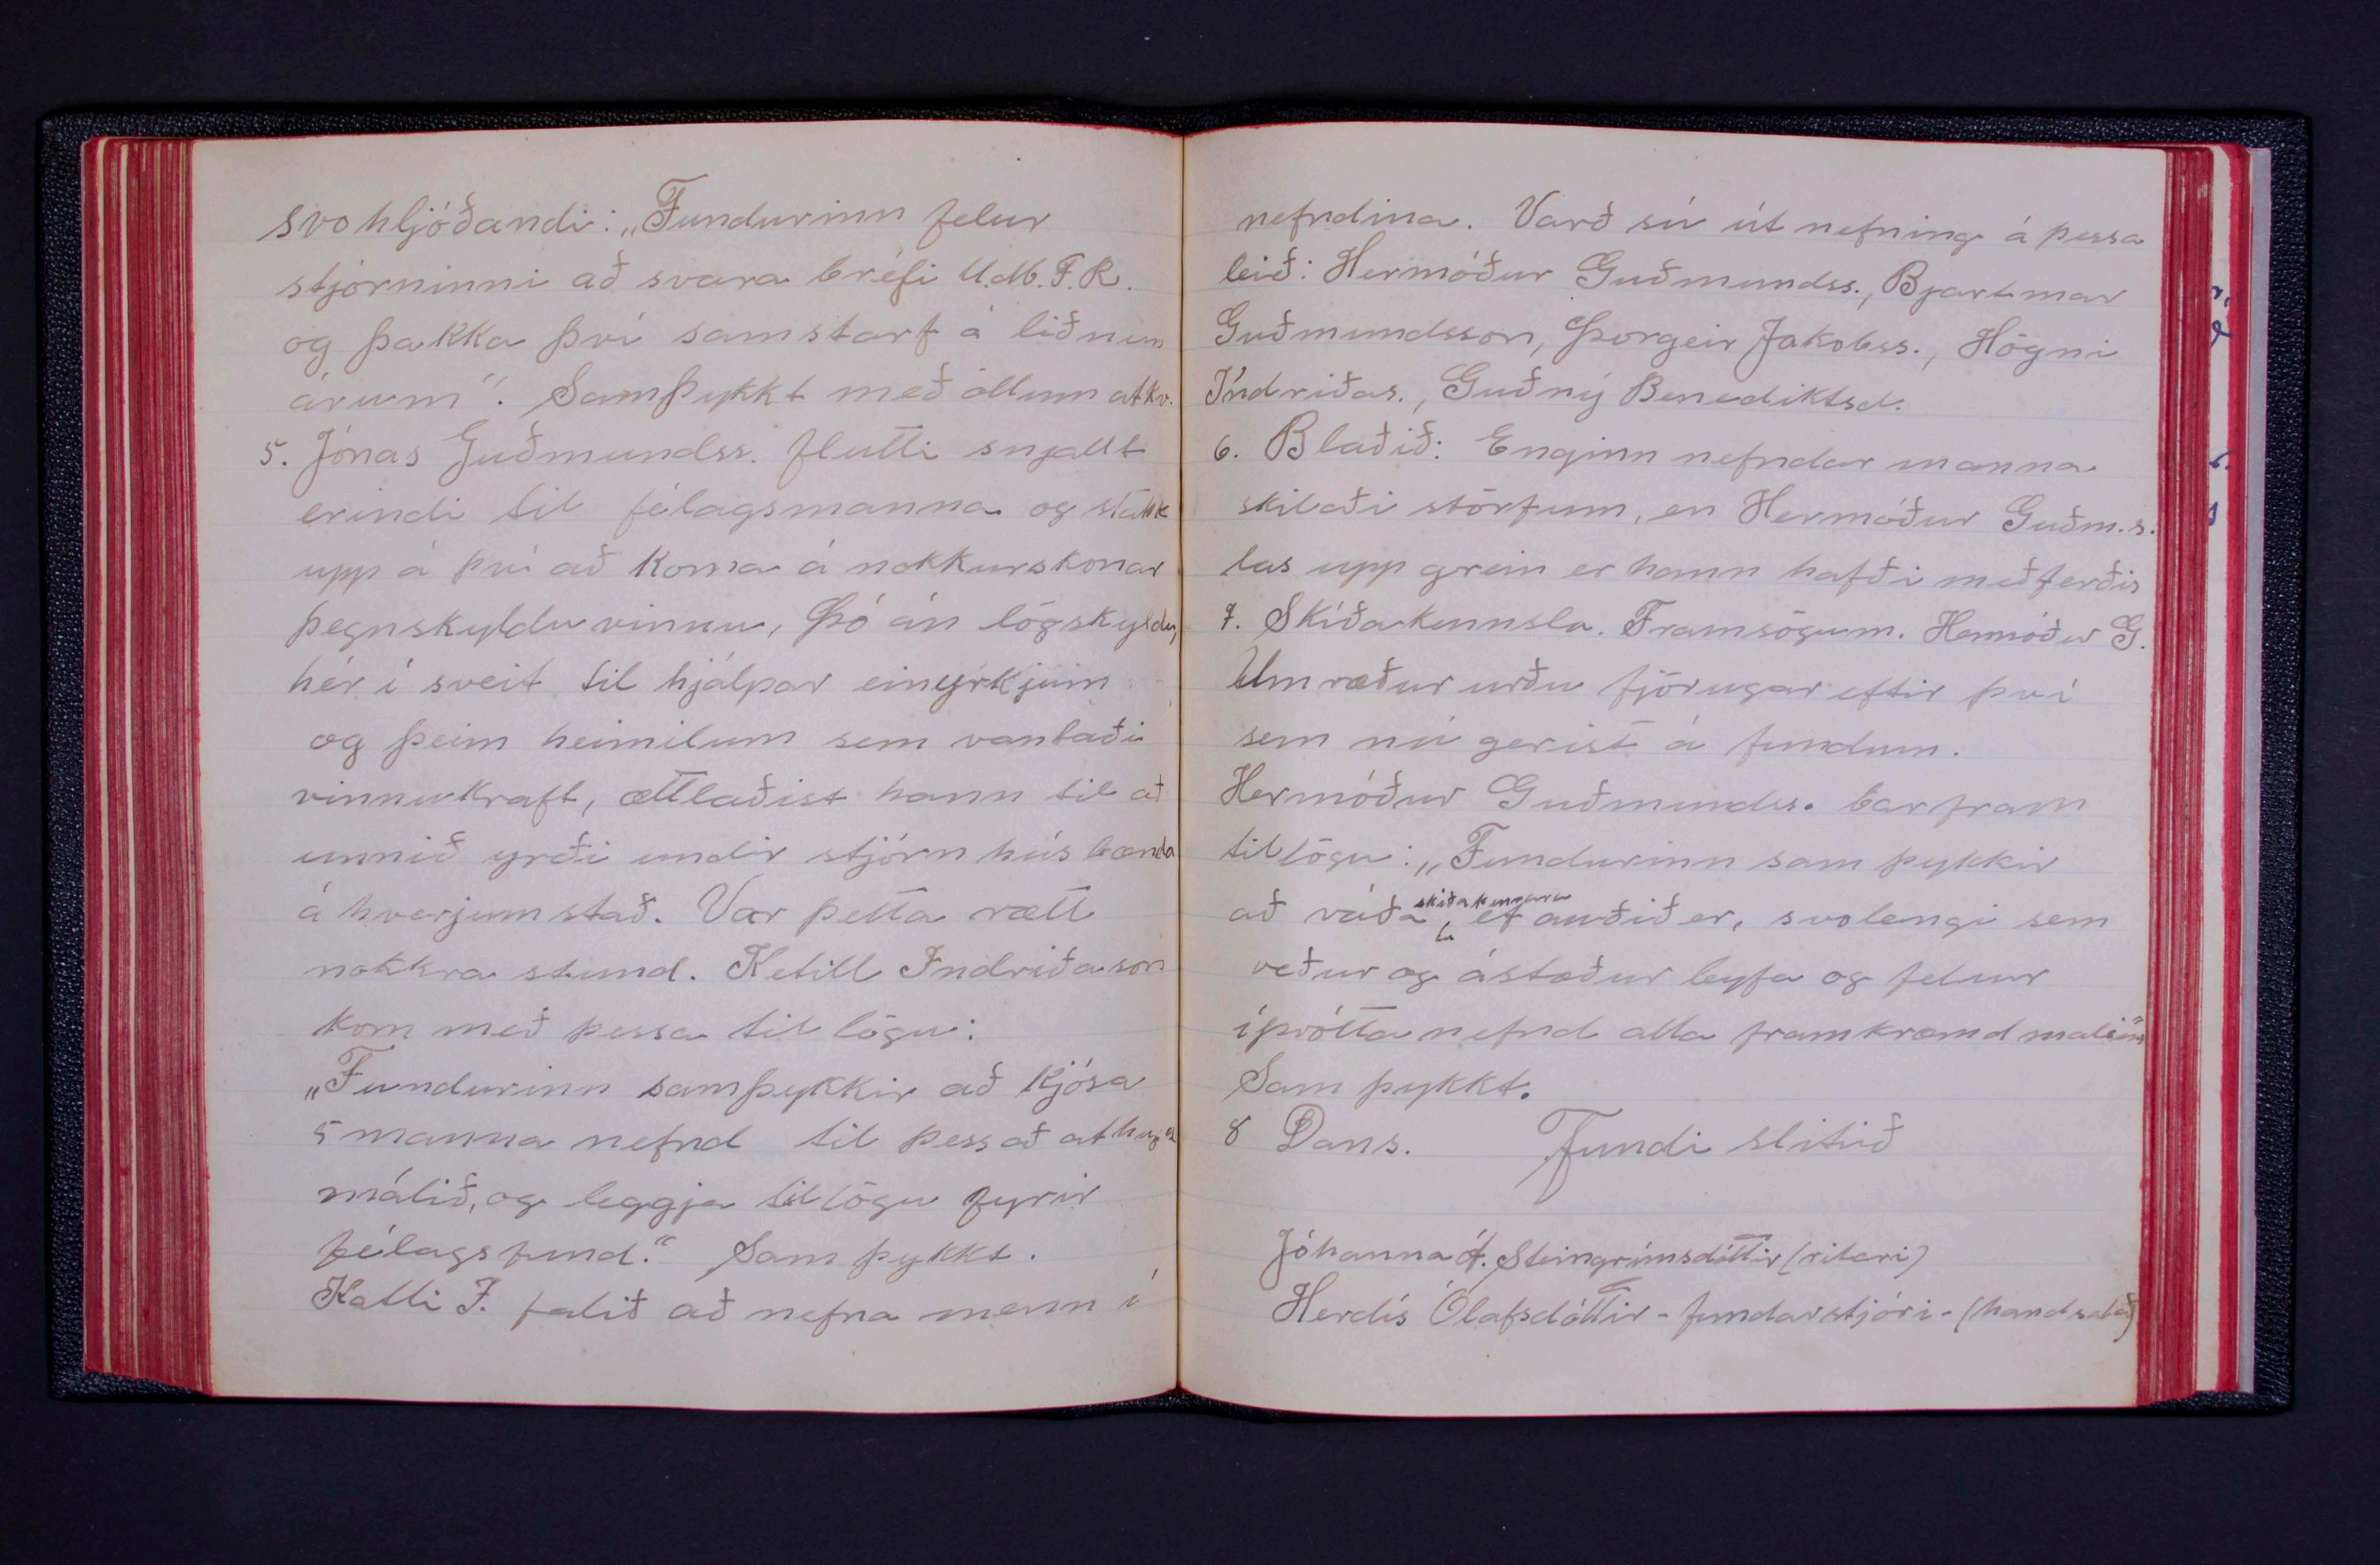 svohljóðandi: „Fundurinn felur
stjórninni að svara bréfi U.M.F.R.
og þakka því samstarf á liðnum
árum". Samþykkt með öllum atkv.
5. Jónas Guðmundss. flutti snjallt
erindi til félagsmanna og stakk
upp á því að koma á nokkurskonar
þegnskylduvinnu, þó án lögskyldu,
hér í sveit til hjálpar einyrkjum
og þeim heimilum sem vantaði
vinnukraft, ættlaðist hann til að
unnið yrði undir stjórn húsbænda
á hverjum stað. Var þetta rætt
nokkra stund. Ketill Indriðason
kom með þessa tillögu:
„Fundurinn samþykkir að kjósa
5 manna nefnd til þess að athuga
málið, og leggja tillögu fyrir
félagsfund." Samþykkt.
Katli I. falið að nefna menn í
nefndina. Varð sú útnefning á þessa
leið: Hermóður Guðmundss., Bjartmar
Guðmundsson, Þorgeir Jakobss., Högni
Indriðas., Guðný Benediktsd.
6. Blaðið: Enginn nefndarmanna
skilaði störfum, en Hermóður Guðm.s.
las upp grein er hann hafði meðferðis
7. Skíðakennsla. Framsögum. Hermóður G.
Umræður urðu fjörugar eftir því
sem nú gerist á fundum.
Hermóður Guðmundss. bar fram
tillögu: „Fundurinn samþykkir
að ráða skíðakennara ef auðið er, svolengi sem
veður og ástæður leyfa og felur
íþróttanefnd alla framkræmd málsins"
Samþykkt.
8 Dans. Fundi slitið
Jóhanna Á. Steingrímsdóttir (ritari)
Herdís Ólafsdóttir - fundarstjóri - (handsalað)